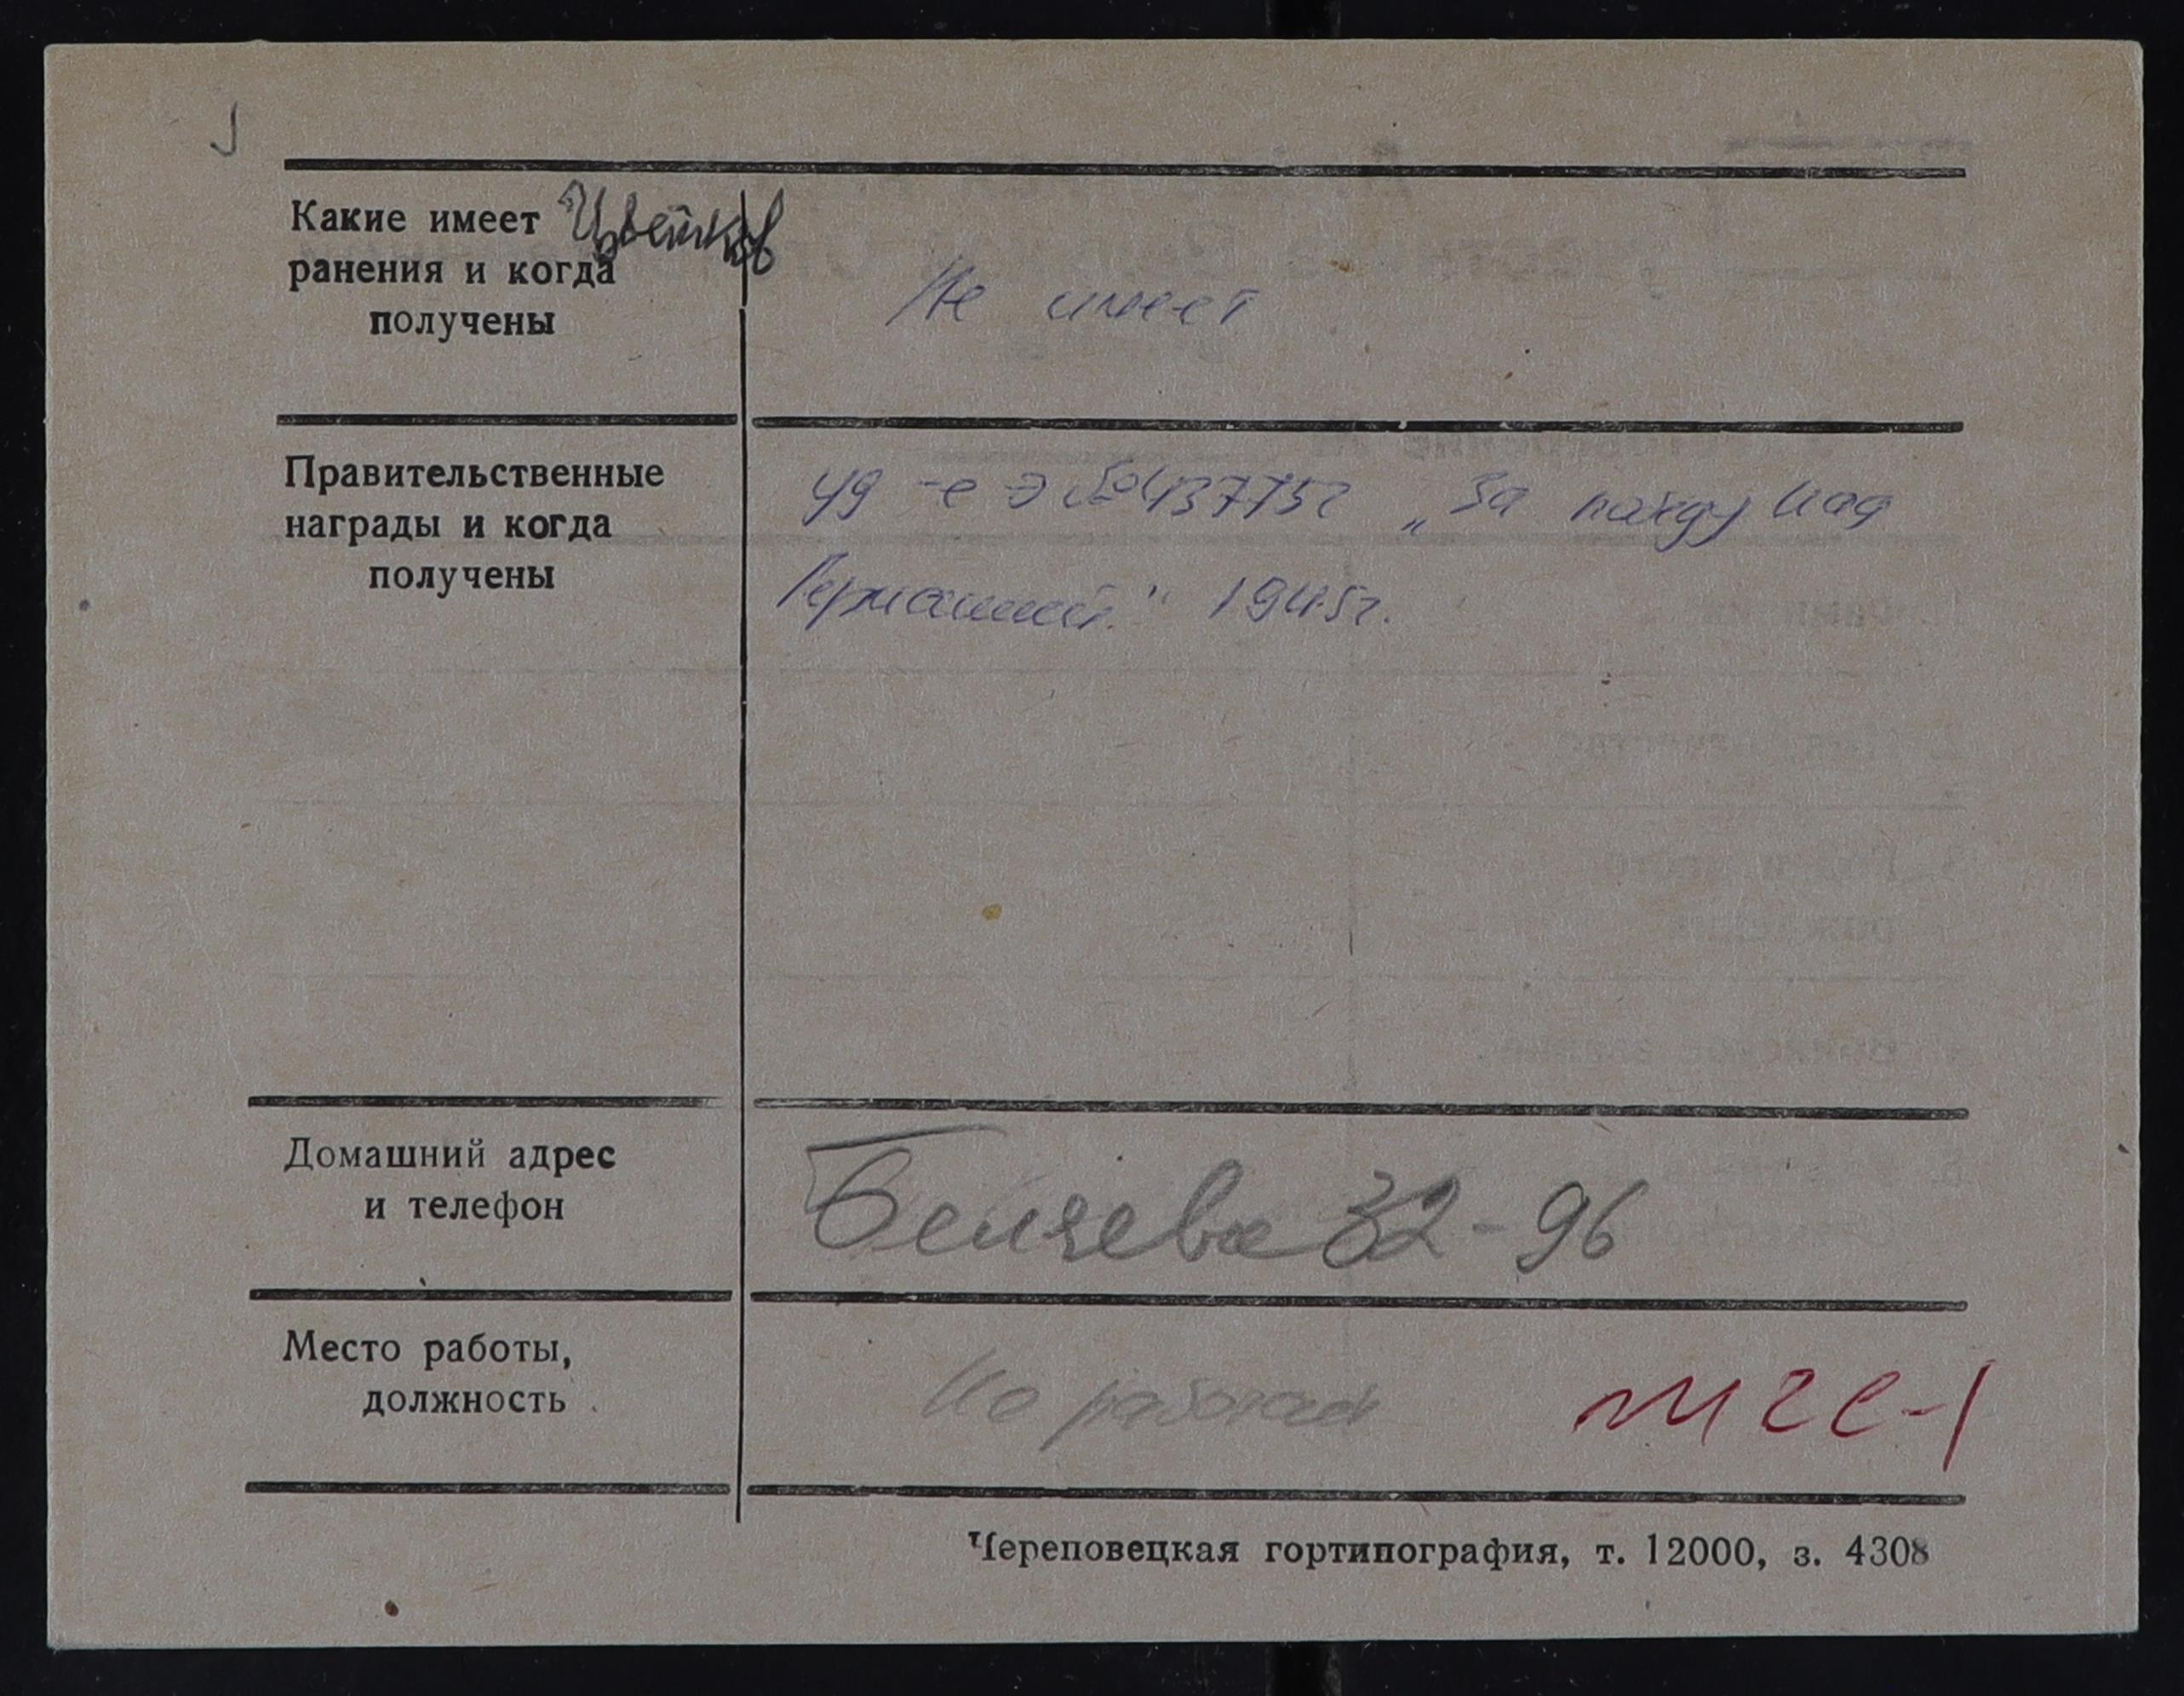 Какие имеет Цветков
ранения и когда
получены
Не имеет
Правительственные
награды и когда
получены
уд-е Э №437752 „За победу над
Германией" 1945г.
Домашний адрес
и телефон
Беляева 32-96
Место работы,
должность
Не работает
Череповецкая гортипография, т. 12000, з. 4308